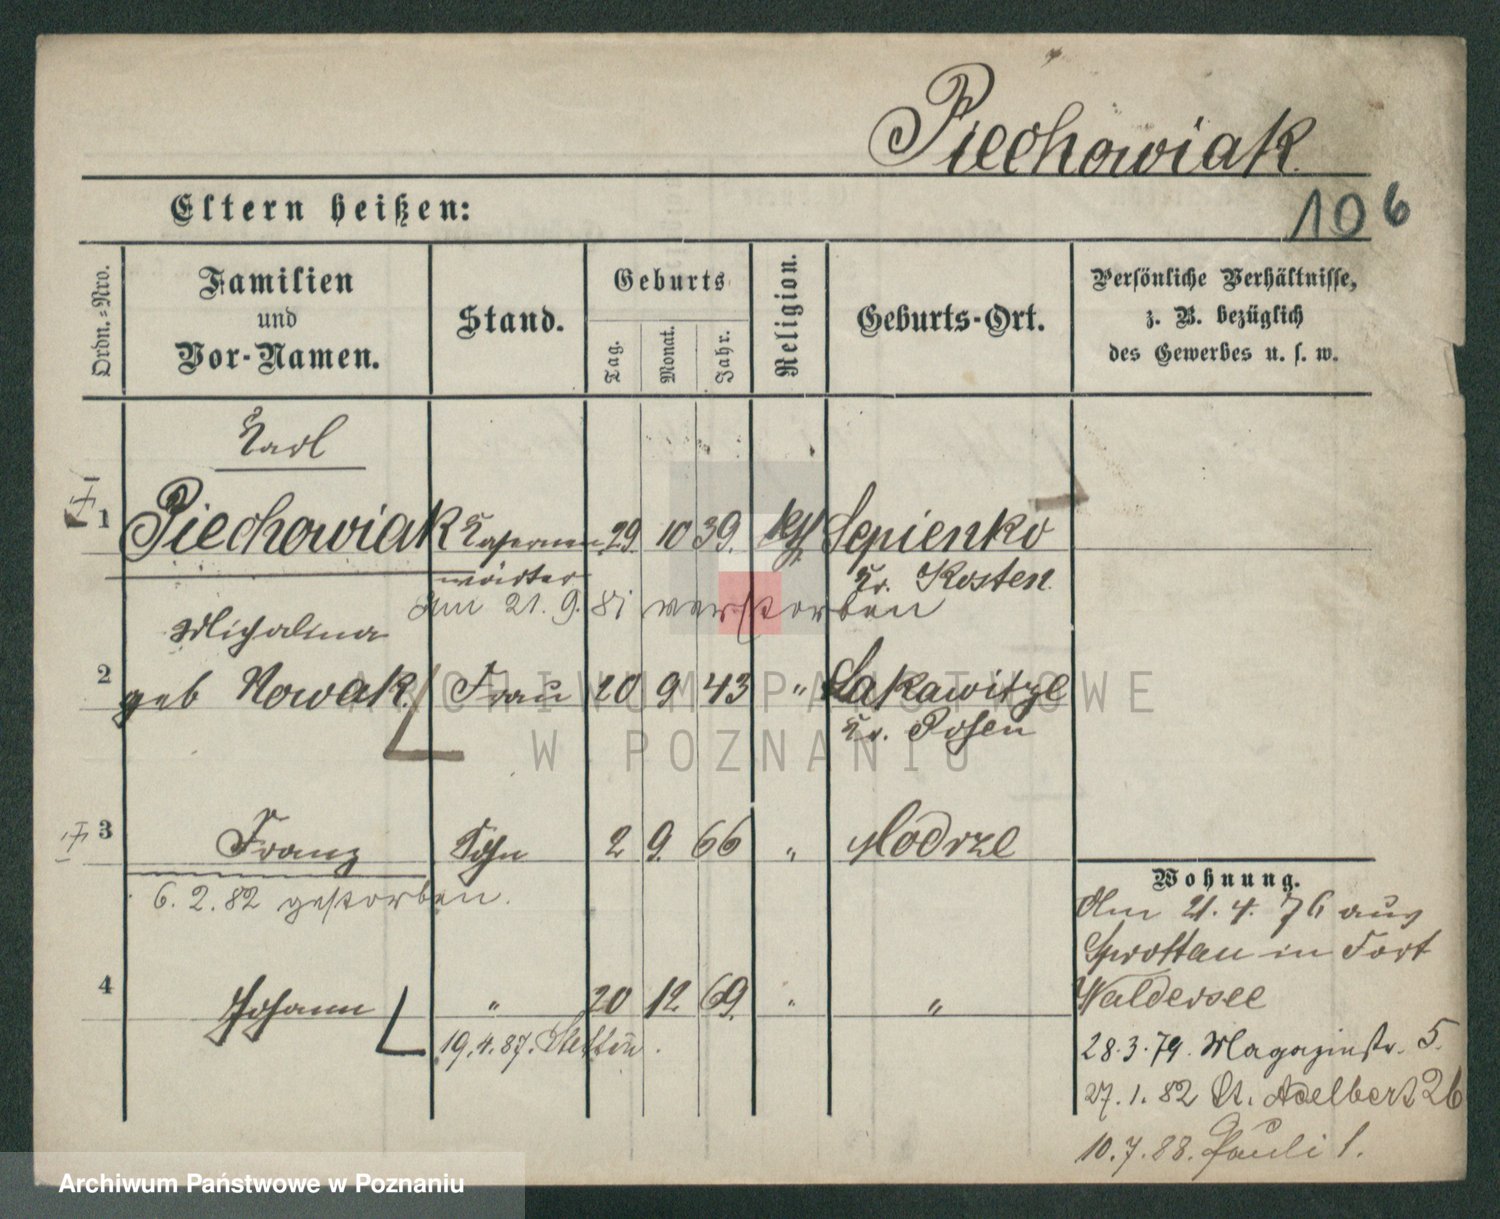 Piechowiak
Eltern heißen:
106
Ordn.-Nro.
Familien
und
Vor-Namen.
Stand.
Geburts
Tag.
Monat.
Jahr.
Religion.
Geburts-Ort.
Persönliche Verhältnisse,
z. B. bezüglich
des Gewerbes u. s. w.
Karl
1 Piechowiak Kasernen 29. 10 39. kth Sepienko
wärter Kr. Kosten
am 21. 9. 81 verstorben
Michalina
2 geb Nowak Frau 20 9 43 " Sakawitze
Kr. Posen
3 Franz Sohn 2 9. 66 " Modrze
6. 2. 82 gestorben.
4 Johann " 20 12 69. " "
19. 4. 87. Stettin.
Wohnung.
Am 21. 4. 76 aus
Sprottau in Fort
Waldersee
28. 3. 79. Magazinstr. 5.
27. 1. 82 St. Adelbert 26
10. 7. 88. Pauli 1.
ARCHIWUM PAŃSTWOWE
W POZNANIU
Archiwum Państwowe w Poznaniu